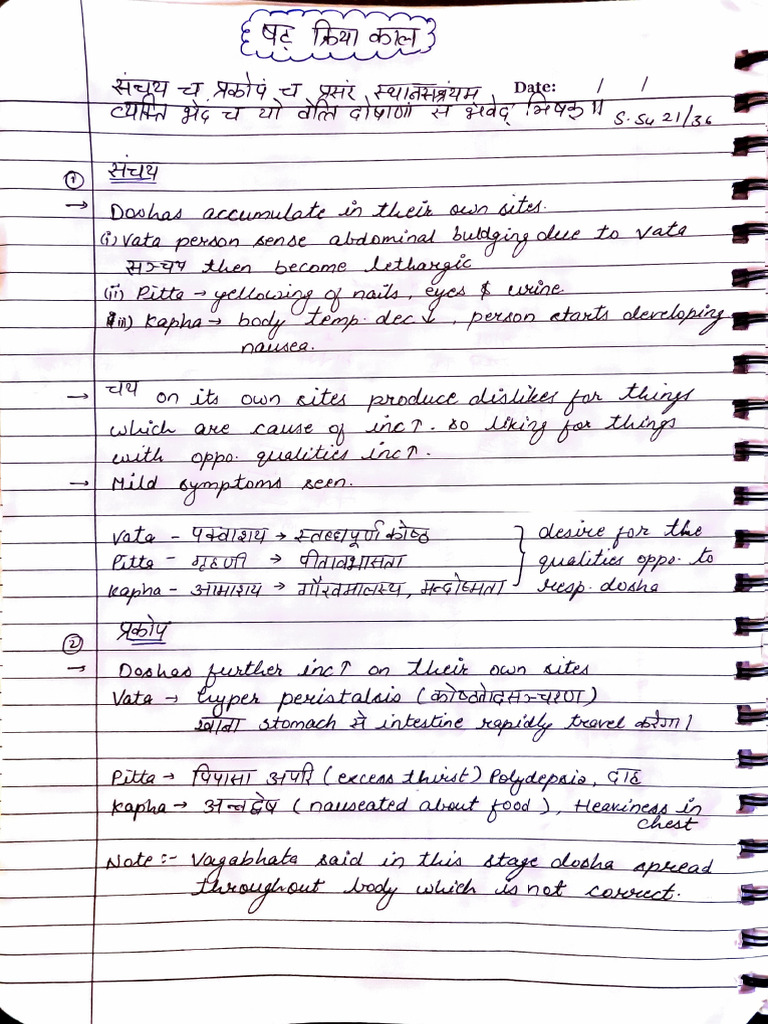 षट् क्रिया काल
संचयं च प्रकोपं च प्रसरं स्थानसंश्रयम् Date: / /
व्यक्तिं भेदं च यो वेत्ति दोषाणां स भवेद् भिषक्॥ S.Su 21/36
① संचय
→ Doshas accumulate in their own sites.
(i) Vata person sense abdominal buldging due to vata
सञ्चय then become lethargic
(ii) Pitta → yellowing of nails, eyes & urine
(iii) Kapha → body temp. dec↓, person starts developing
nausea.
→ चय on its own sites produce dislikes for things
which are cause of inc↑. so liking for things
with oppo. qualities inc↑.
→ Mild symptoms seen.
Vata - पक्वाशय → स्तब्धपूर्ण कोष्ठ } desire for the
Pitta - गृहणी → पीतावभासता qualities oppo. to
Kapha - आमाशय → गौरवमालस्य, मन्दोष्मता resp. dosha
② प्रकोप
→ Doshas further inc↑ on their own sites
Vata → hyper peristalsis (कोष्ठतोदसञ्चरण)
खाना stomach से intestine rapidly travel करेगा।
Pitta → पिपासा अपरि (excess thirst) Polydepsia, दाह
Kapha → अन्नद्वेष (nauseated about food), Heaviness in
chest
Note :- Vagabhata said in this stage dosha spread
throughout body which is not correct.